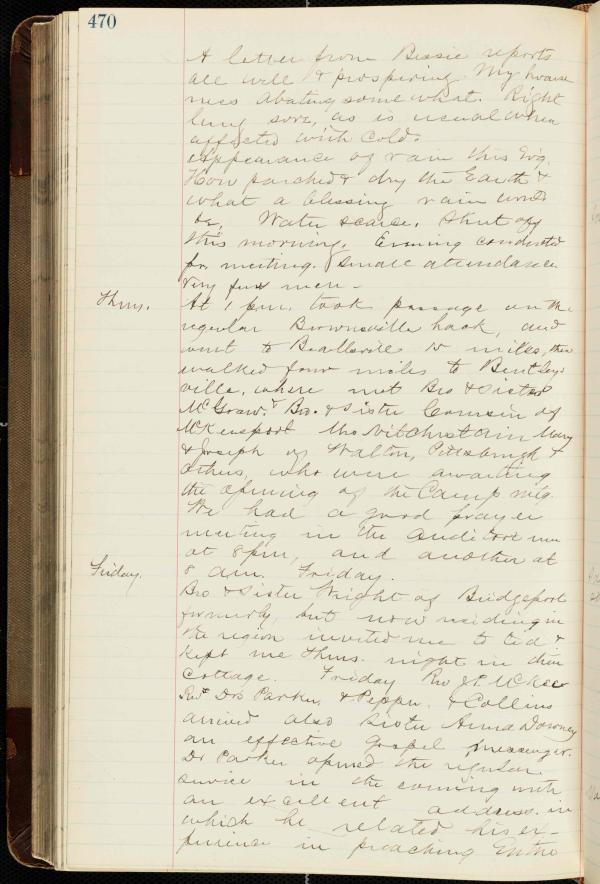 470
A letter from Bessie reports
all well & prospering. My hoarse
ness abating somewhat. Right
lung sore, as is usual when
affected with Cold.
Appearance of rain this Ev'g.
How parched & dry the Earth &
what a blessing rain would
be, Water scarce, shut off
this morning. Evening conducted
pr. meeting. Small attendance
Very few men -
Thurs.
At 1 pm. took passage on the
regular Brownsville hack, and
went to Beallsville 10 miles, then
walked four miles to Bentleys
ville, where met Bro & Sister
McGraw, Bro. & Sister Cousin of
McKeesport Mary
& Joseph of Walton, Pittsburgh &
others, who were awaiting
the opening of the Camp mtg.
We had a good prayer
meeting in the auditorium
at 8 pm, and another at
8 am. Friday.
Friday.
Bro & Sister Wright of Bridgeport
formerly, but now residing in
the region invited me to tea &
kept me Thurs. night in their
Cottage. Friday Rev J.P. McKee
Revd Drs Parker, & Pepper, & Collins
arrived also Sister Anna Downey
an effective Gospel messenger.
Dr Parker opened the regular
service in the evening with
an excellent address. in
which he related his ex-
perience in preaching Entire